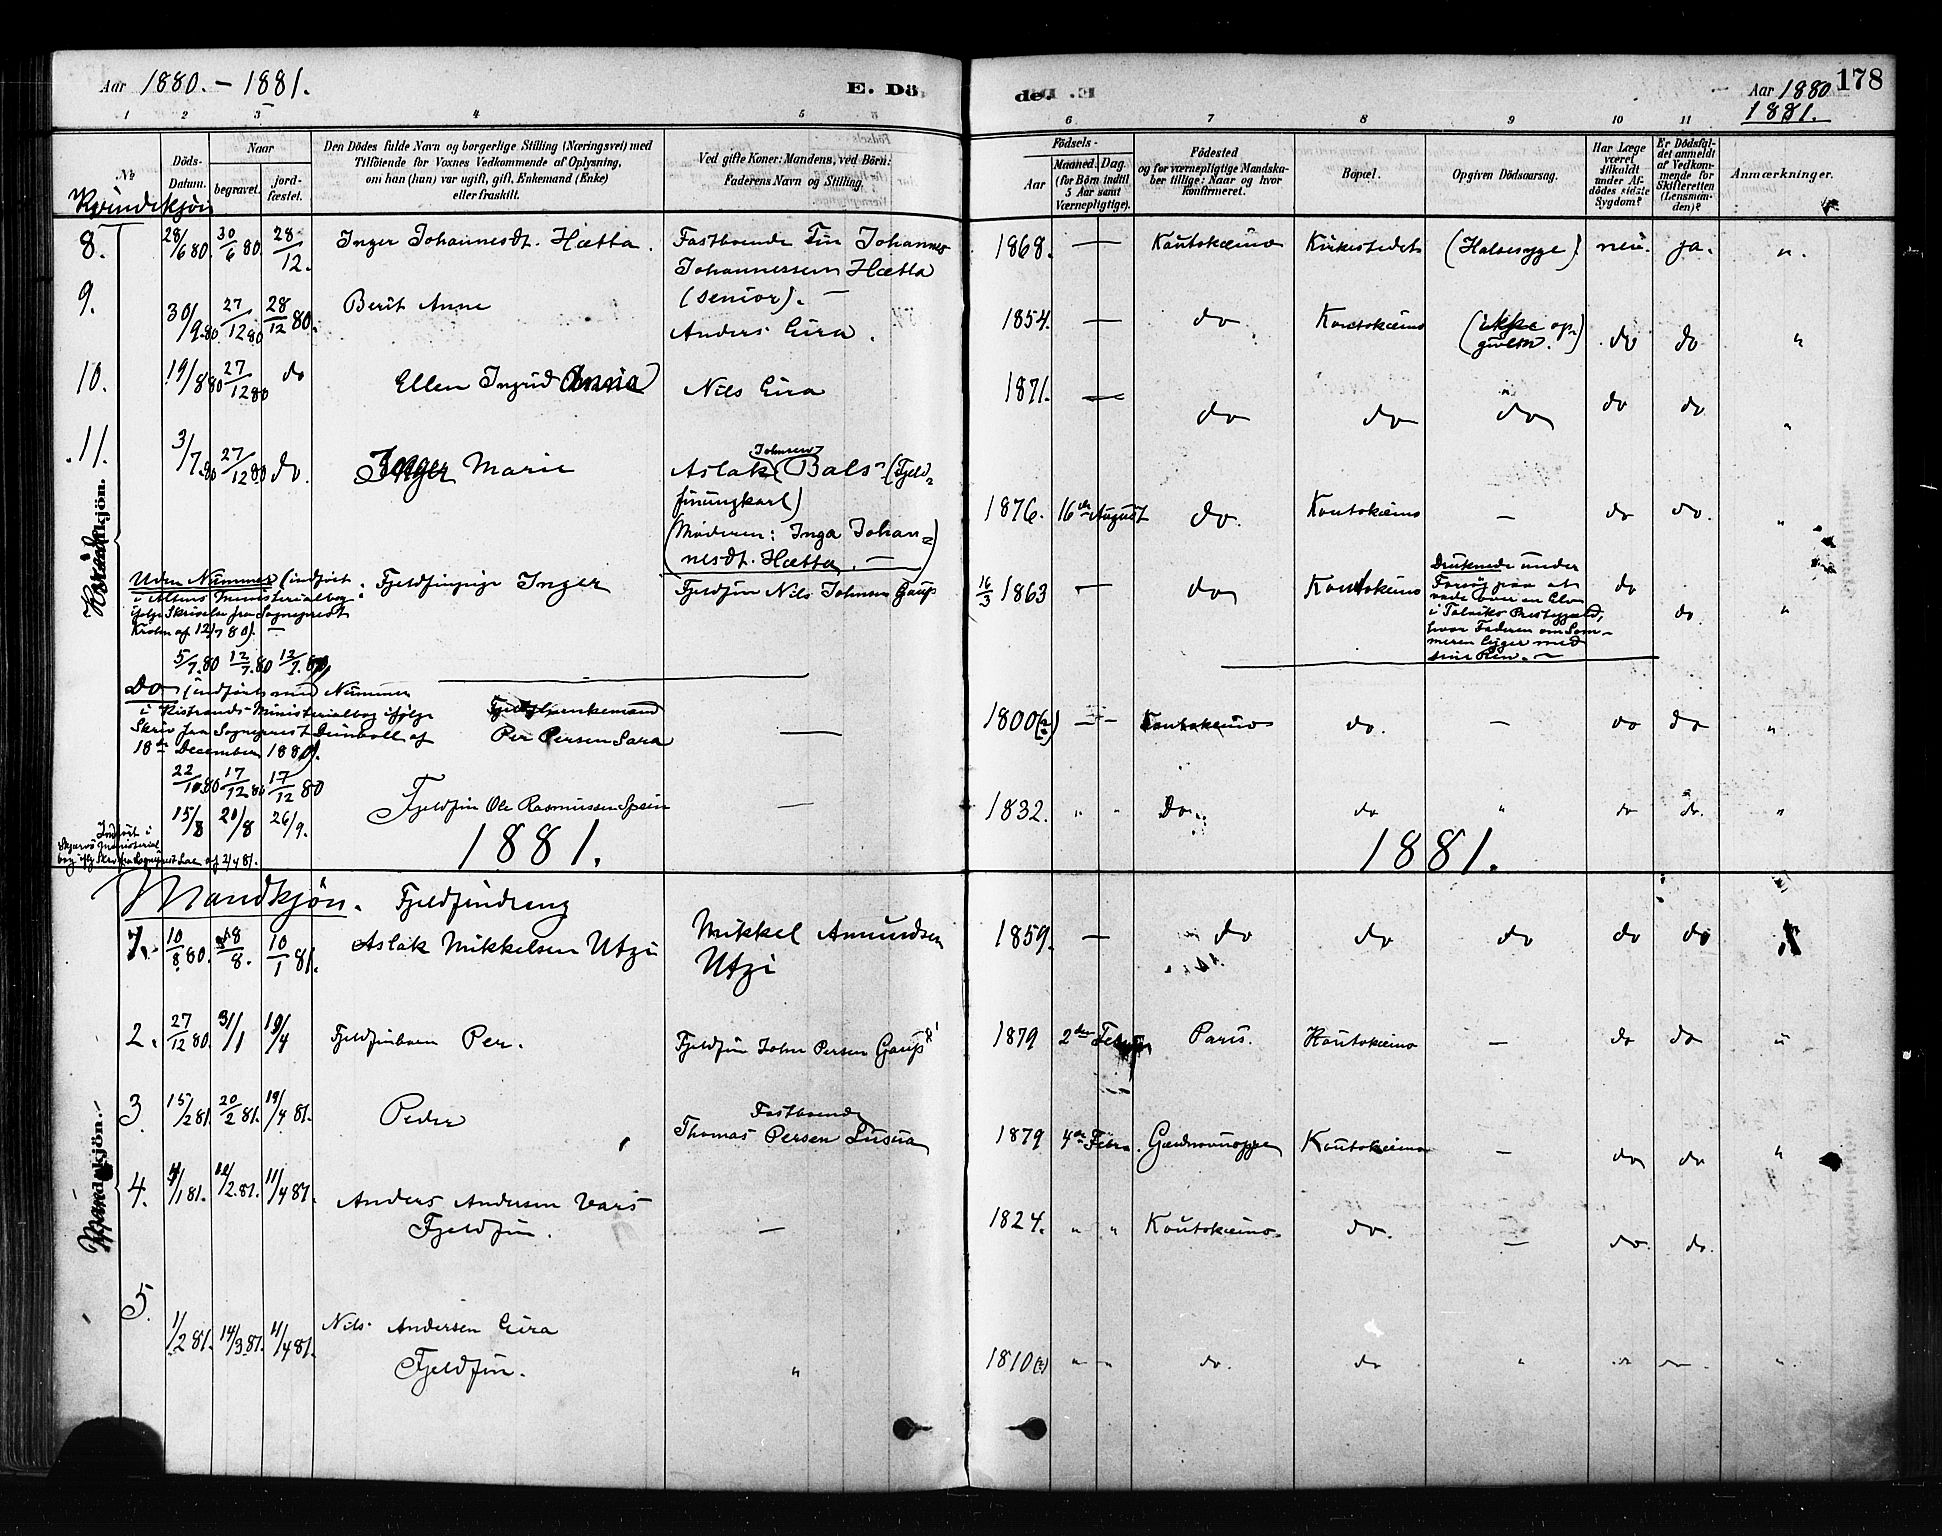 Aar 1880. - 1881.
E. Dö
de.
Aar 1880
1881.
178
1 2 3 4 5
6 7 8 9 10 11
No
Döds-
Datum.
Naar
begravet.
jord-
fæstet.
Den Dödes fulde Navn og borgerlige Stilling (Næringsvei) med
Tilföiende for Voxnes Vedkommende af Oplysning,
om han (hun) var ugift, gift, Enkemand (Enke)
eller fraskilt.
Ved gifte Koner: Mandens, ved Börn:
Faderens Navn og Stilling.
Födsels-
Aar
Maaned. Dag.
(for Börn indtil
5 Aar samt
Værnepligtige).
Födested
og for værnepligtige Mandska-
ber tillige: Naar og hvor
konfirmeret.
Bopæl.
Opgiven Dödsaarsag.
Har Læge
været
tilkaldt
under Af-
dödes sidste
Sygdom?
Er Dödsfal-
det anmeldt
af Vedkom-
mende for
Skifteretten
(Lensman-
den)?
Anmærkninger.
Kvindekjön
8. 28/6 80 30/6 80 28/12. Inger Johannesdt. Hætta. Fastboende Fin Johannes
Johannessen Hætta
(senior). —
1868. — Koutokeino Kirkestedet (Halsesyge). nei. ja. "
9. 30/9 80 27/12 80 28/12 80. Berit Anne
Anders Eira.
1854. — do Koutokeino (ikke op-
given.) do do "
10. 19/8 80 27/12 80 do Ellen Ingrid Anna Nils Eira
1871. — do do do do do "
11. 3/7 80 27/12 80 do. Inger Marie Aslak Johnsen Bals (Fjeld-
finungkarl)
(Moderen: Inga Johan-
nesdt. Hætta. —)
1876. 16de August do. Koutokeino — do do. "
Kvindekjön.
Uden Nummer (indført
i Altens Ministerialbog
ifølge Skrivelse fra Sogneprest
Krohn af 12/7 80). —
Fjeldfinpige Inger Fjeldfin Nils Johnsen Gaup
16/3 1863 — do Koutokeino
Druknede under
Forsøg paa at
vade over en Elv
i Talviks Prestegjeld,
hvor Faderen om Som-
meren ligger med
sine Ren. —
do do. "
5/7 80 12/7 80 12/7 80
Do (indført med Nummer
i Kistrands Ministerialbog ifølge
Skriv. fra Sogneprest af
18de December 1880).
Per Persen Sara —
1800(?) — — Koutokeino do. — do do "
22/10 80 17/12 80 17/12 80
15/8 20/8 26/9. Fjeldfin Ole Rasmussen Spein —
1832. " " Do. do " do do. "
Indført i
Skjervø Ministerial
bog ifølg Skr. fra Sogneprest af 2/4 81.
1881. 1881.
Mandkjön. Fjeldfindreng
1. 10/8 80. 18/8. 10/1 81. Aslak Mikkelsen Utzi Mikkel Amundsen
Utzi
1859. — do do do do do
2. 27/12 80 3/1 19/4 Fjeldfinbarn Per. Fjeldfin John Persen Gaup
1879 2den Paris. Koutokeino — do do "
3. 15/2 81. 20/2 81. 19/4 81. Peder Fastboende
Thomas Persen
1879 4de Febr. Koutokeino — do do "
Mandskjön.
4. 4/1 81. 12/2 81. 11/4 81. Anders Andersen Vars
Fjeldfin. —
1824. " " Koutokeino. do. — do. do.
5. 1/2 81. 14/3 81. 11/4 81. Nils Andersen Eira
Fjeldfin. "
1810(?) " " do. do " do do ".